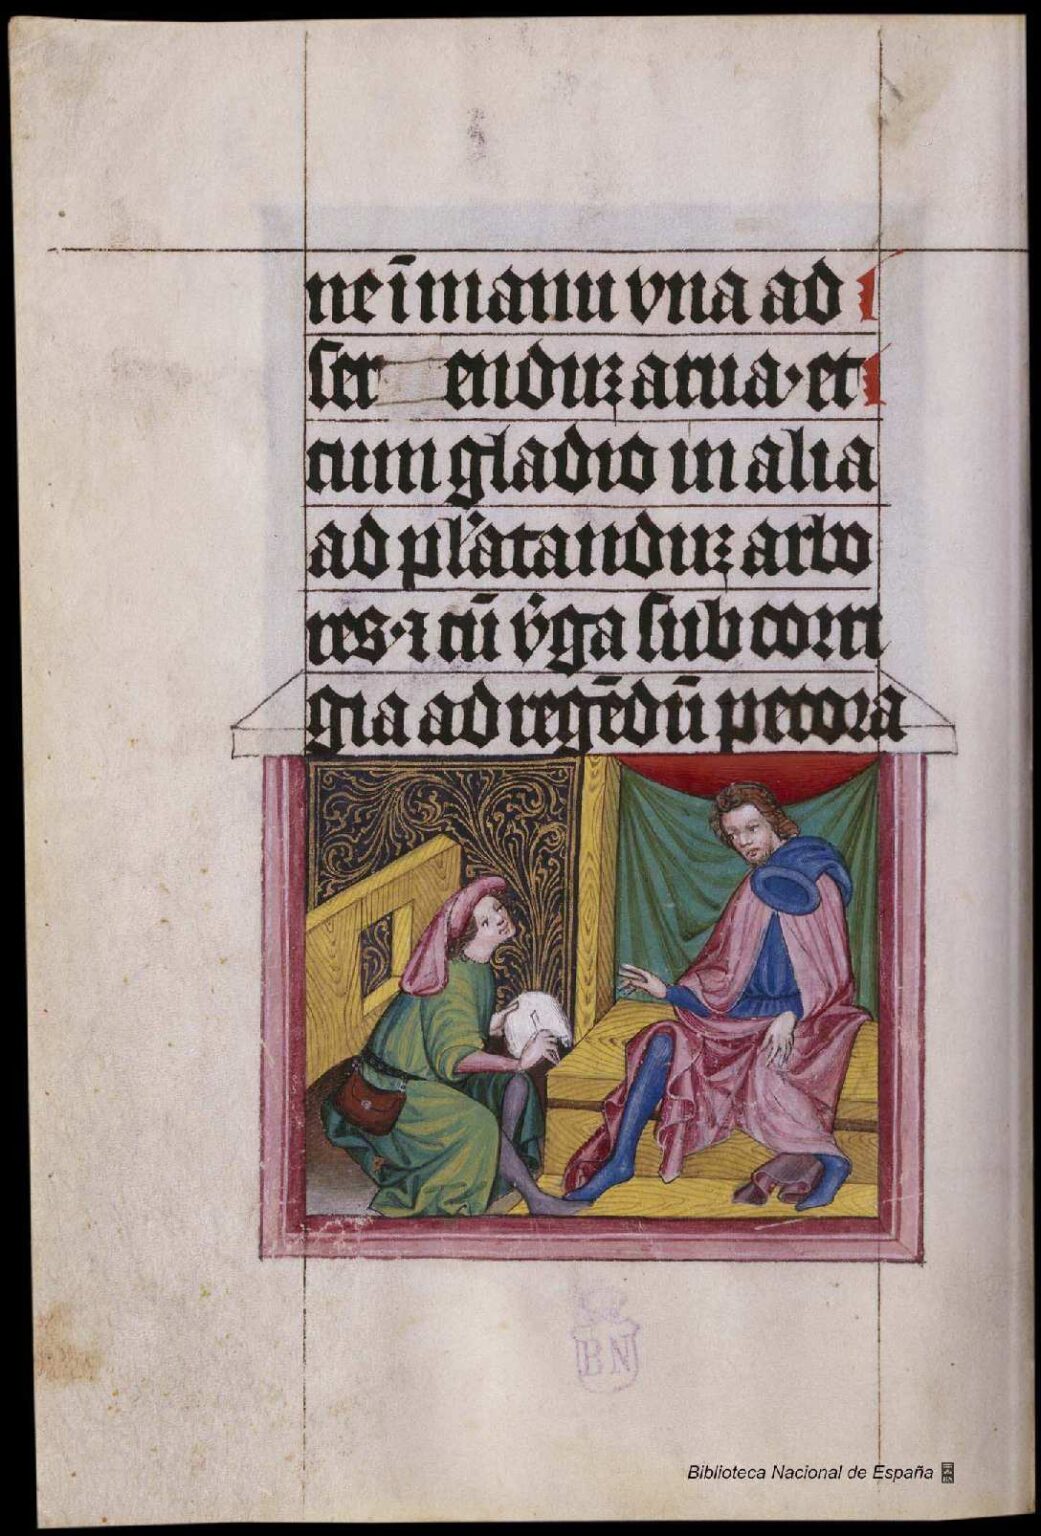 ne ī manu vna ad
ser enduꝫ arua · et
cum gladio in alia
ad plātanduꝫ arbo
res · ⁊ cū v̓ga sub corri
gia ad regēdū pecora
BN
Biblioteca Nacional de España